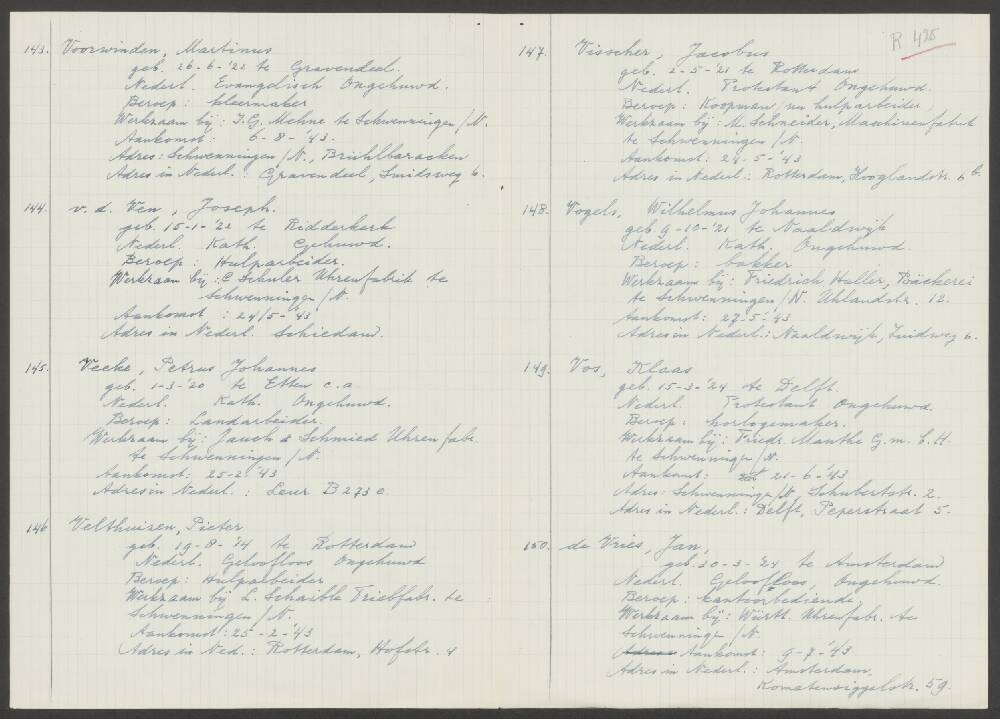 143. Voorwinden, Martinus
geb. 26-6-'22 te Gravendeel.
Nederl. Evangelisch Ongehuwd.
Beroep: kleermaker
Werkzaam bij: J.G. Mehne te Schwenningen/N.
Aankomst: 6-8-'43.
Adres: Schwenningen/N., Brühlbaracken
Adres in Nederl.: Gravendeel, Smidsweg 6.
144. v.d. Ven, Joseph.
geb. 15-1-'22 te Ridderkerk
Nederl. Kath. Gehuwd.
Beroep: Hulparbeider.
Werkzaam bij: C Schuler Uhrenfabrik te
Schwenningen/N.
Aankomst: 24/5-'43
Adres in Nederl. Schiedam.
145. Veeke, Petrus Johannes
geb. 1-3-'20 te Etten c.a.
Nederl. Kath. Ongehuwd.
Beroep: Landarbeider.
Werkzaam bij: Jauch & Schmied Uhrenfabr.
te Schwenningen/N.
Aankomst: 25-2-'43
Adres in Nederl.: Leur B 273 c.
146 Velthuizen, Pieter
geb. 19-8-'14 te Rotterdam
Nederl. Geloofloos Ongehuwd
Beroep: Hulparbeider
Werkzaam bij L. Schaible Triebfabr. te
Schwenningen/N.
Aankomst: 25-2-'43
Adres in Ned.: Rotterdam, Hofstr. 4
R 495
147. Visscher, Jacobus
geb. 2-5-'21 te Rotterdam
Nederl. Protestant Ongehuwd.
Beroep: Koopman/nu hulparbeider,
Werkzaam bij: M. Schneider, Maschinenfabrik
te Schwenningen/N.
Aankomst: 24-5-'43
Adres in Nederl.: Rotterdam, Hooglandstr. 6 b.
148. Vogels, Wilhelmus Johannes
geb. 9-10-'21 te Naaldwijk
Nederl. Kath. Ongehuwd.
Beroep: bakker
Werkzaam bij: Friedrich Haller, Bäckerei
te Schwenningen/N. Uhlandstr. 12.
Aankomst: 27-5-'43
Adres in Nederl.: Naaldwijk, Zuidweg 6.
149. Vos, Klaas
geb. 15-3-'24 te Delft.
Nederl. Protestant Ongehuwd.
Beroep: horlogemaker.
Werkzaam bij: Friedr. Mauthe G.m.b.H.
te Schwenningen/N.
Aankomst: 21-6-'43
Adres: Schwenningen/N, Schubertstr. 2.
Adres in Nederl.: Delft, Peperstraat 5.
150. de Vries, Jan,
geb. 30-3-'24 te Amsterdam
Nederl. Geloofloos, Ongehuwd.
Beroep: kantoorbediende,
Werkzaam bij: Württ. Uhrenfabr. te
Schwenningen/N.
Adres Aankomst: 9-7-'43
Adres in Nederl.: Amsterdam,
59.